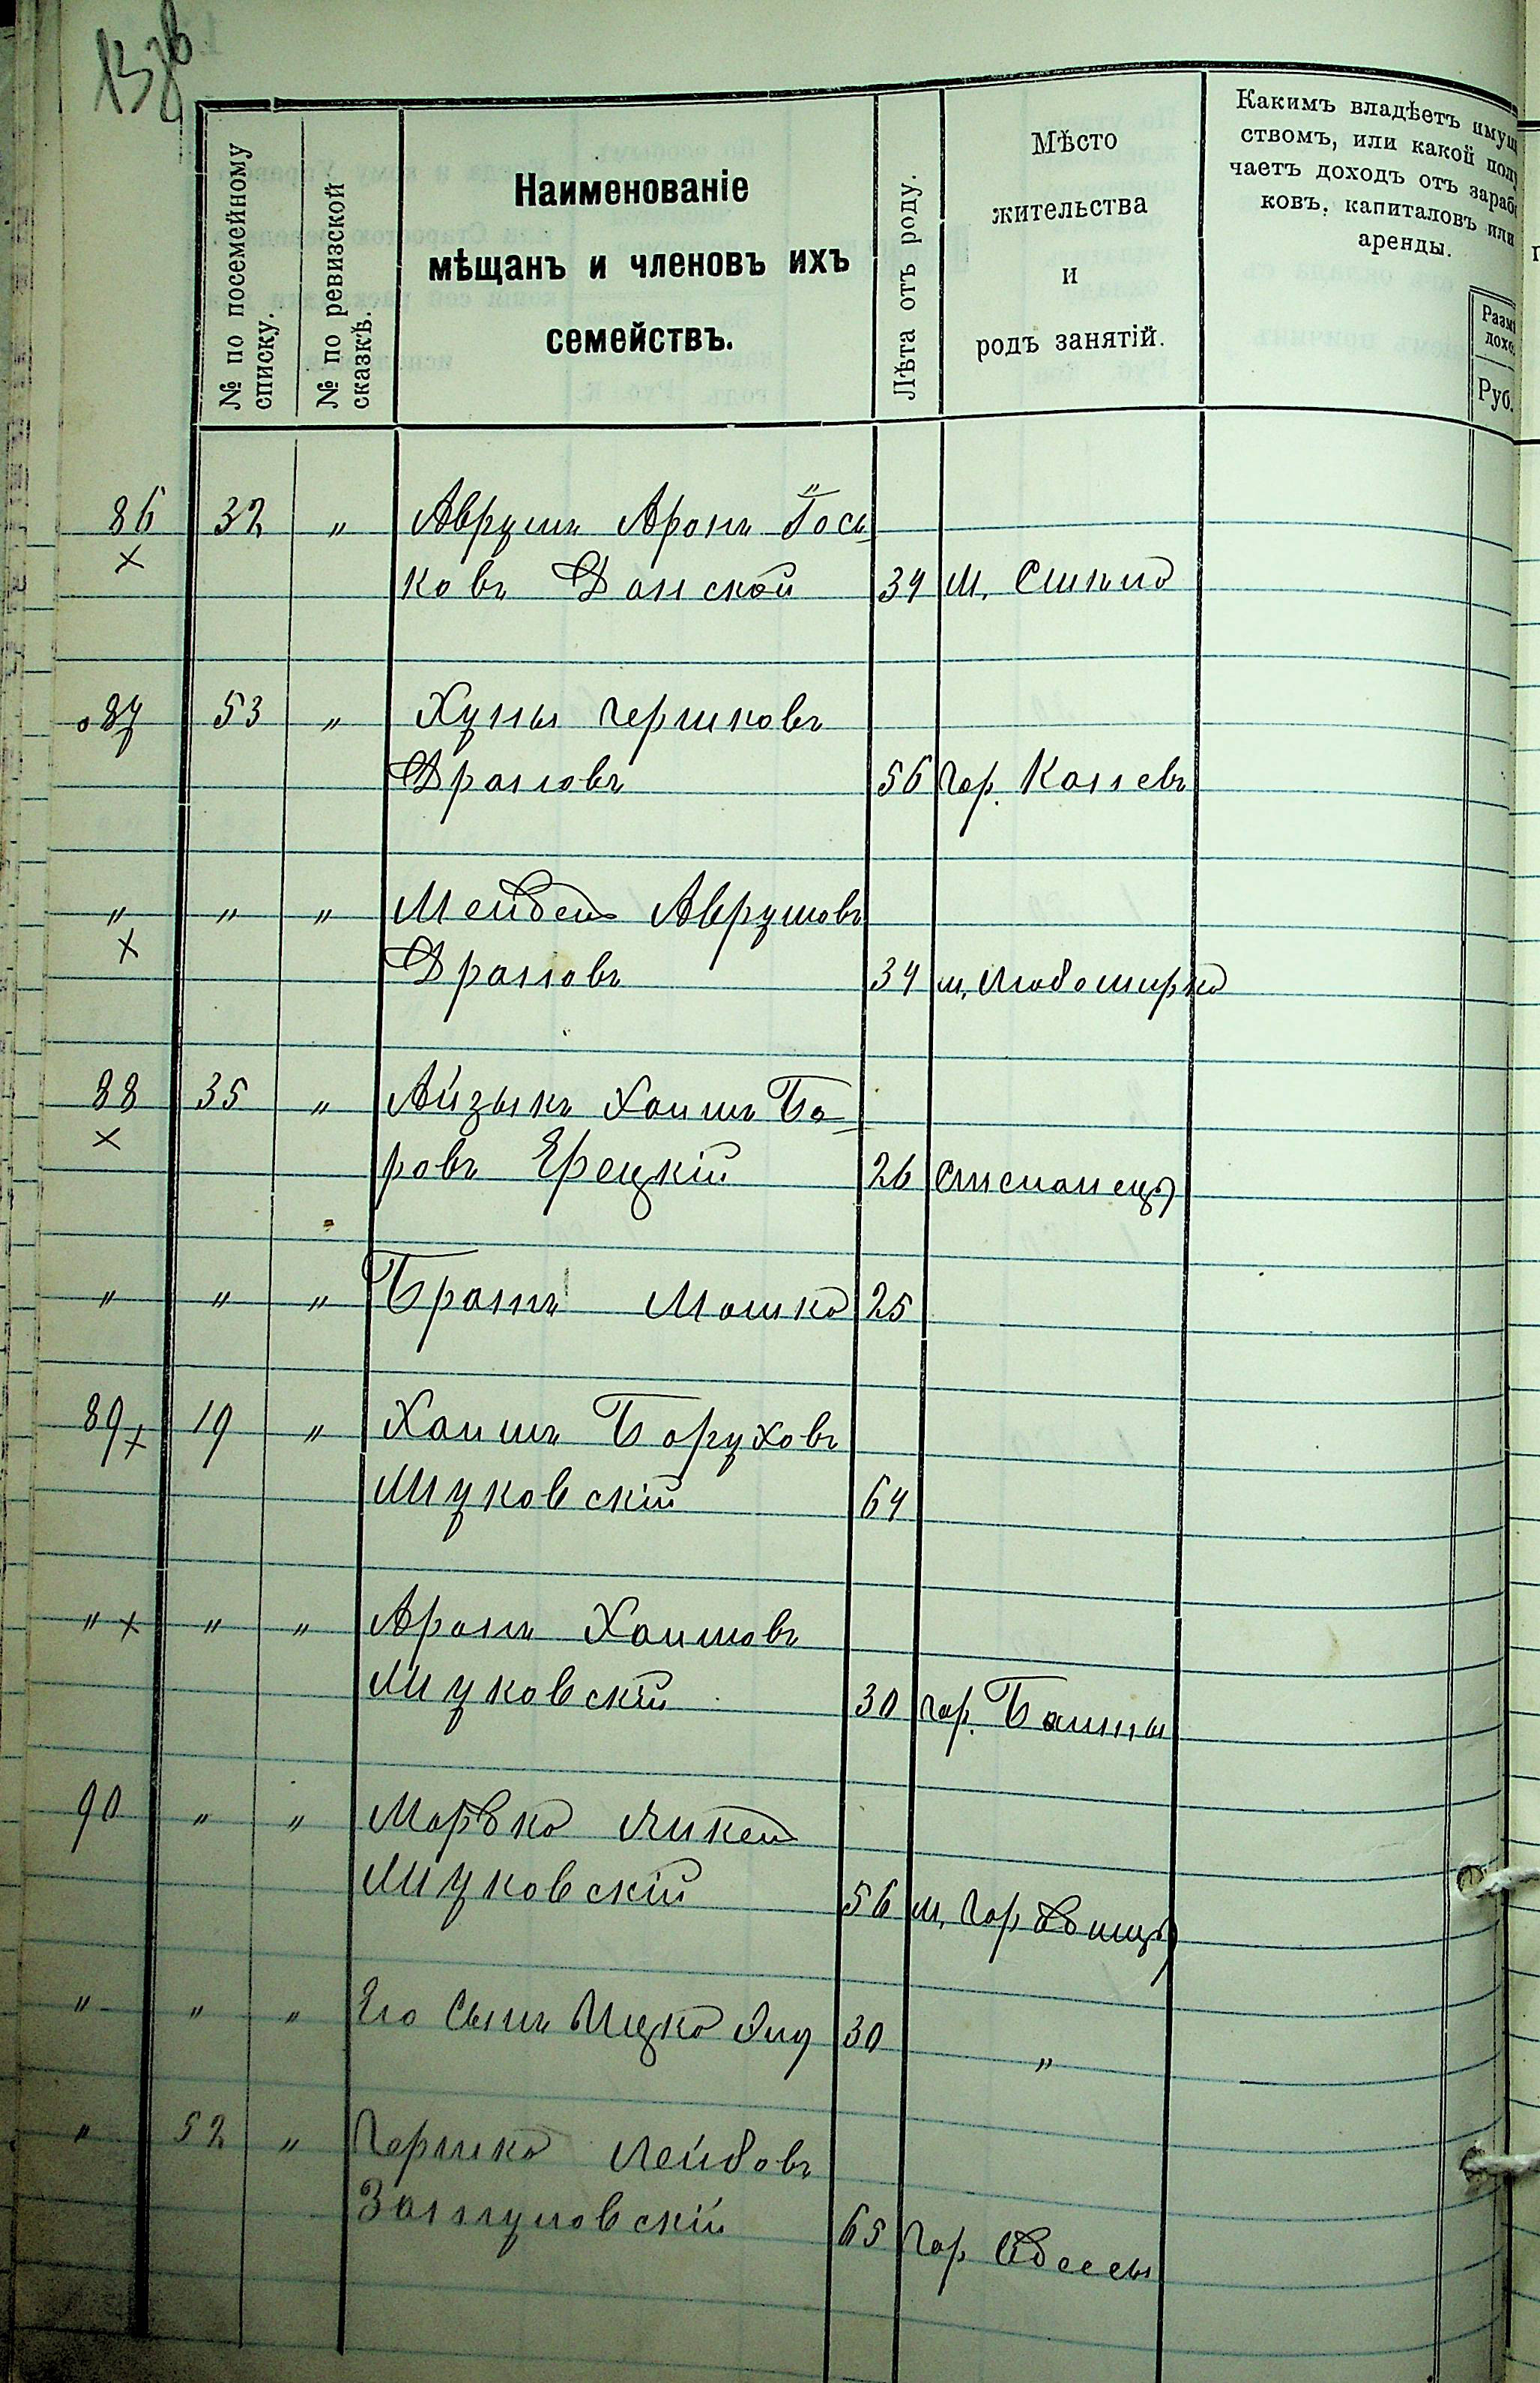 13 зв
№ по посемейному списку.
№ по ревизской сказкѣ.
Наименованіе
мѣщанъ и членовъ ихъ
семействъ.
Лѣта отъ роду.
Мѣсто
жительства
и
родъ занятій.
Каким​ъ владѣетъ имущ
ствомъ, или какой полу
чаетъ доходъ отъ зараб
ковъ, капиталовъ или
аренды.
Разм
дохо
Руб.
86 32 „ Аврумъ Аронъ Іось
ковъ Донской 34 м.
87 53 „ Хуны Гершковъ
Драновъ 56 гор. Каневъ
„ „ „ Мейдель Аврумовъ
Драновъ 34 м. Любомирка
88 35 „ Айзыкъ Хаимъ Бо-
ровъ Ерецкій 26
„ „ „ Братъ Мошко 25
89 19 „ Хаимъ Боруховъ
Жуковскій 64
„ „ „ Аронъ Хаимовъ
Жуковскій 30 гор.
90 „ „ Мордко
Жуковскій 56 м. Гордвицъ
„ „ „ Его Сынъ Ицко 30 „
„ 52 „ Гершко Лейбовъ
Заслуновскій 65 гор. Одессы